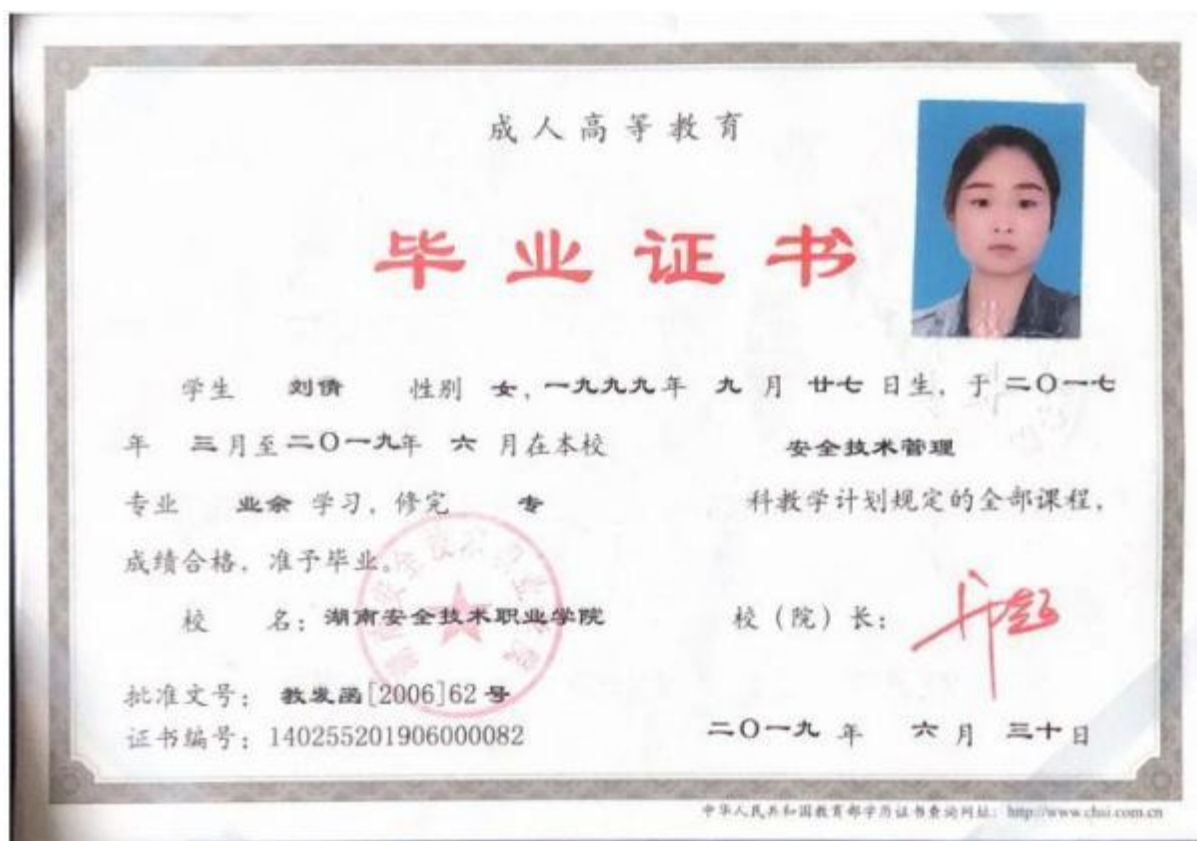 成人高等教育
毕业证书
学生 刘倩 性别 女，一九九九年 九 月 廿七 日生，于 二〇一七
年 三月至二〇一九年 六 月在本校 安全技术管理
专业 业余 学习，修完 专 科教学计划规定的全部课程，
成绩合格，准予毕业。
校 名：湖南安全技术职业学院 校（院）长：
批准文号：教发函[2006]62 号
证书编号：140255201906000082 二〇一九 年 六 月 三十日
中华人民共和国教育部学历证书查询网址：http://www.chsi.com.cn